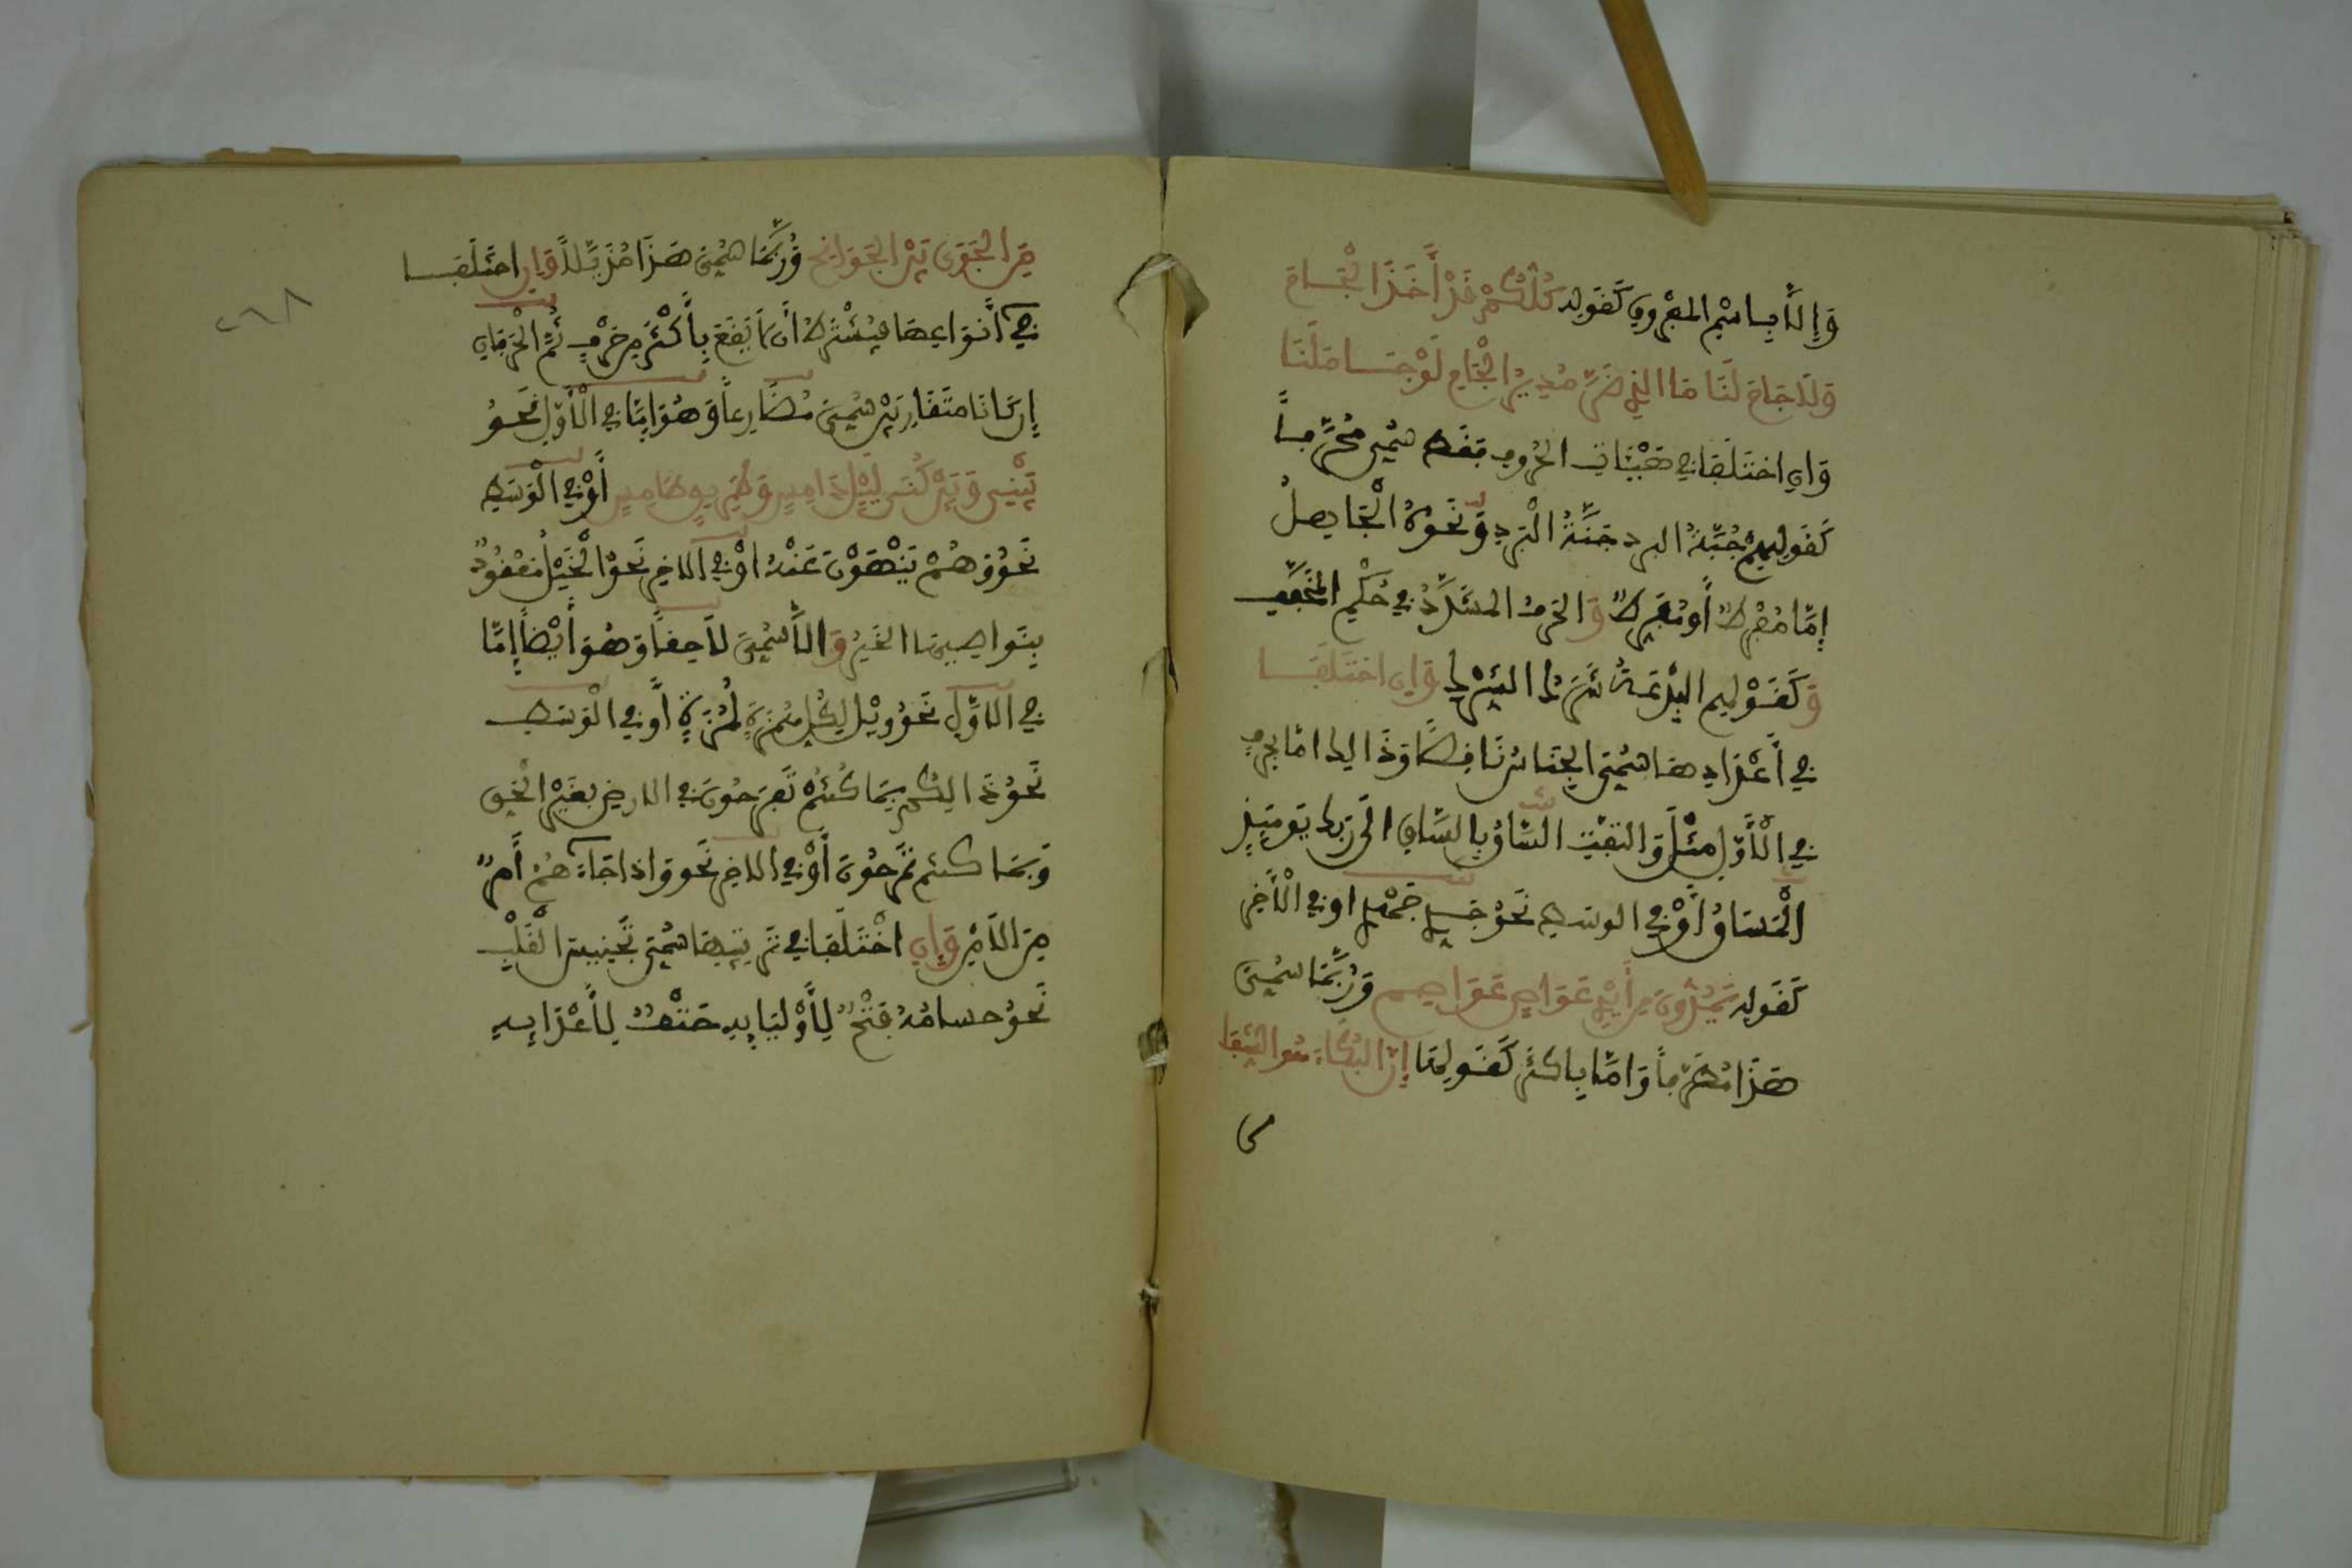 وَإِلَّا بِاسْمِ المَفْرُوقِ كَقَوْلِهِ كُلُّكُمْ قَدْ أَخَذَ الْجَامَ
وَلَا جَامَ لَنَا مَا الذِي ضَرَّ مُدِيرَ الْجَامِ لَوْ جَامَلَنَا
وَإِنِ اخْتَلَفَا فِي هَيْئَاتِ الْحُرُوفِ فَقَط سُمِّيَ مُحَرَّفاً
كَقَوْلِهِمْ جُبَّةُ البرد جُنَّةُ الْبَرْدِ وَنَحْوُهُ الْجَاهِلُ
إِمَّا مُفْرِطٌ أَوْ مُفَرِّطٌ وَالحَرْفُ المشَدَّدُ فِي حُكْمِ المُخَفَّفِ
وَكَقَوْلِهِمِ البِدْعَةُ شَرَكُ الشِّرْكِ وَإِنِ اخْتَلَفَا
فِي أَعْدَادِهَا سُمِّيَ الجِنَاسُ نَاقِصًا وَذَالِكَ امَّا بِحَرْفٍ
فِي الْأَوَّلِ مِثْلُ وَالتَفَّتِ السَّاقُ بِالسَّاقِ الَى رَبِّكَ يَوْمَئِذٍ
الْمَسَاقُ أَوْ فِي الوسَطِ نَحْوُ جَدِّي جَهْدِي او فِي الْأَخِرِ
كَقَوْلِهِ يَمُدُّونَ مِنْ أَيْدٍ عَوَاصٍ عَوَاصِمِ وَرُبَّمَا سُمِّيَ
هَذَا مُطَرَّفاً وَامَّا بِاكثَرَ كَقَوْلِهَا إِنَّ البُكَاءَ هُوَ الشِّفَا
مِنَ الجَوَى بَيْنَ الجَوَانِحِ وَرُبَّمَا سُمِّيَ هَذَا مُذَيَّلاً وَإِنِ اخْتَلَفَا
فِي أَنْوَاعِهَا فَيُشْتَرَطُ أَن لَا يَقَعَ بِأَكْثَرَ مِنْ حَرْفٍ ثُمَّ الْحَرْفَانِ
إِن كَانَا مُتَقَارِبَيْنِ سُمِّيَ مُضَارِعاً وَهُوَ إِمَّا فِي الْأَوَّلِ نَحْوُ
بَيْنِي وَبَيْنَ كُنِّي لَيْلٌ دَامِسٌ وَطَرِيقٌ طَامِسٌ أَوْ فِي الْوَسَطِ
نَحْوُ وَهُمْ يَنْهَوْنَ عَنْهُ اوْ فِي الاخِرِ نَحْوُ الْخَيْلُ مَعْقُودٌ
بِنَوَاصِيهَا الخَيْرُ وَإلَّا سُمِّيَ لَاحِقاً وَهُوَ أَيْضاً إِمَّا
فِي الاوَّلِ نَحْوُ وَيْلٌ لِكُلِّ هُمَزَةٍ لُمَزَةٍ أَوْ فِي الْوَسَطِ
نَحْوُ ذَالِكُم بِمَا كُنتُمْ تَفْرَحُونَ فِي الارضِ بِغَيْرِ الْحَقِ
وَبِمَا كنتم تَمْرَحُونَ أَوْ فِي الاخِرِ نَحْو وَإذا جَاءَهُمْ أَمْرٌ
مِنَ الاَمْنِ وَإِنِ اخْتَلَفَا فِي تَرْتِيبِهَا سُمِّيَ تَجْنِيسَ الْقَلْبِ
نَحْوُ حسامُهُ فَتْحٌ لِأَوْلِيَايِهِ حَتْفٌ لِأَعْدَايِهِ
٢٦٨